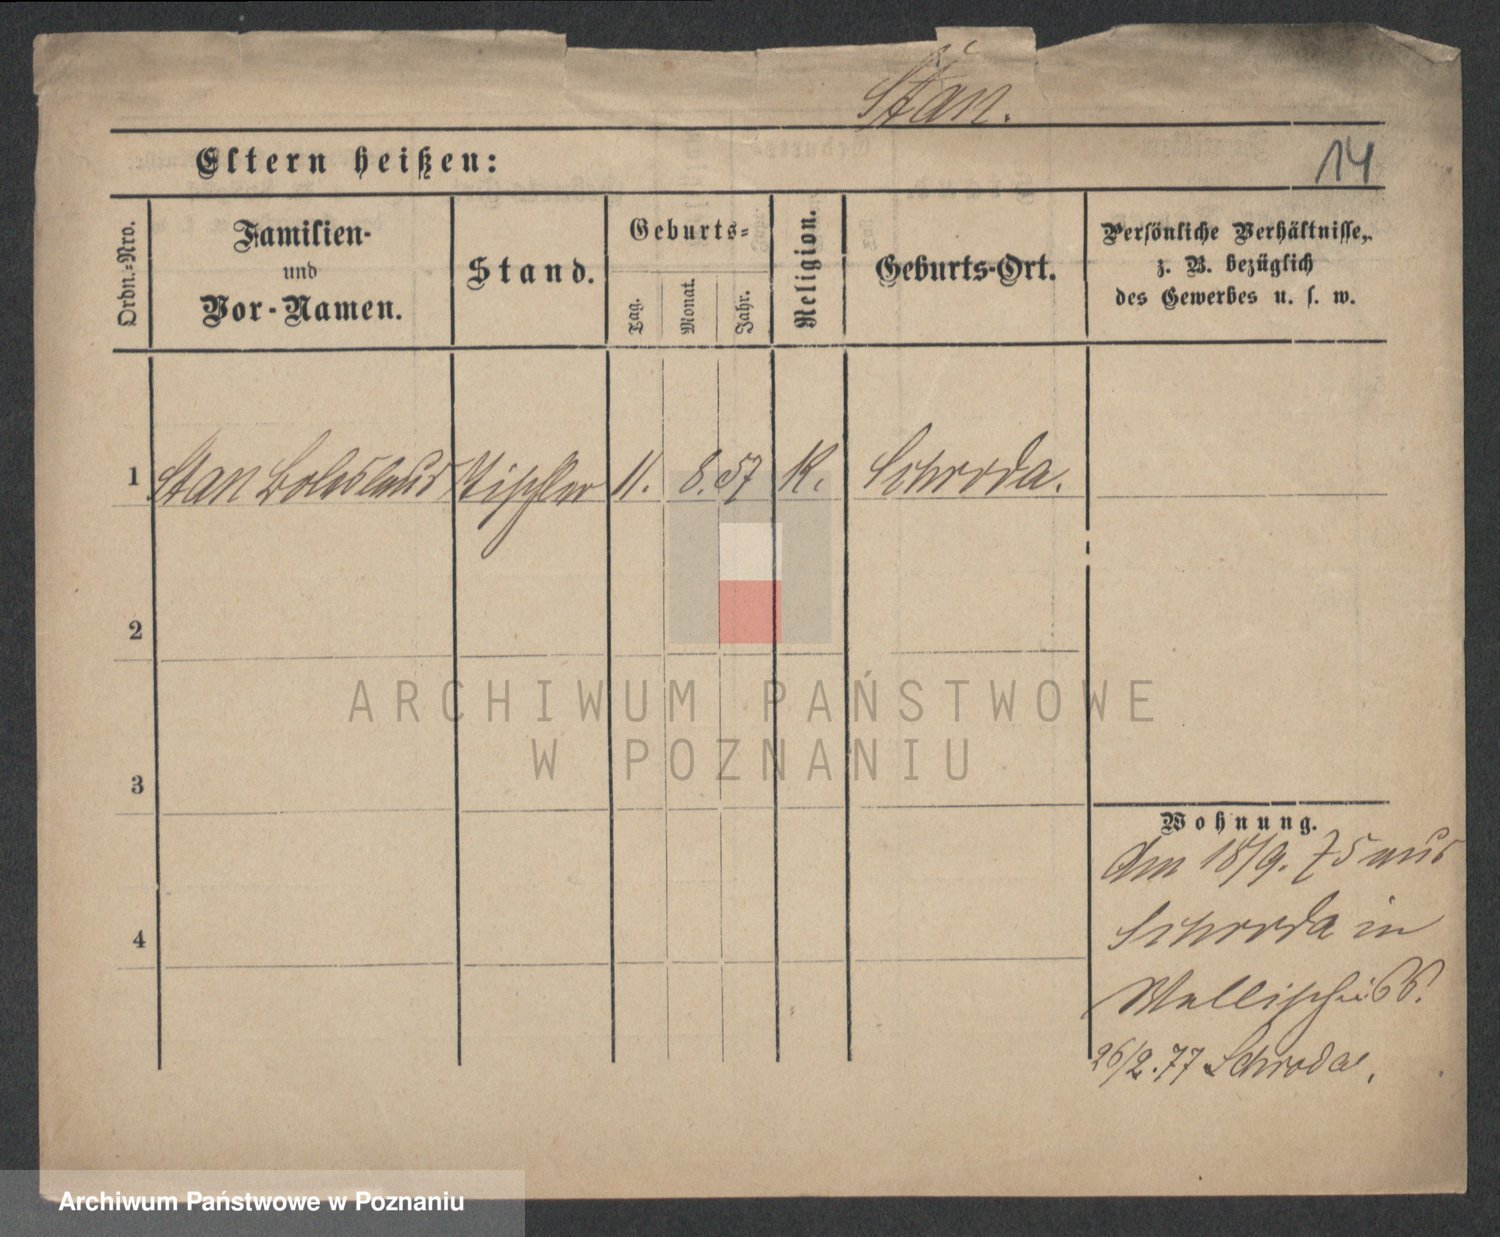 Stan.
14
Eltern heißen:
Ordn.=Nro.
Familien-
und
Vor-Namen.
Stand.
Geburts=
Tag.
Monat.
Jahr.
Religion.
Geburts-Ort.
Persönliche Verhältnisse,
z. B. bezüglich
des Gewerbes u. s. w.
1 Stan Boleslaus Tischler 11. 8. 57 K. Schroda.
2
3
4
Wohnung.
Am 18/9. 75 aus
Schroda in
Wallischei 66.
26/2. 77 Schroda.
ARCHIWUM PAŃSTWOWE
W POZNANIU
Archiwum Państwowe w Poznaniu